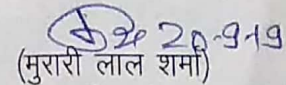 20-9-19
(मुरारी लाल शर्मा)